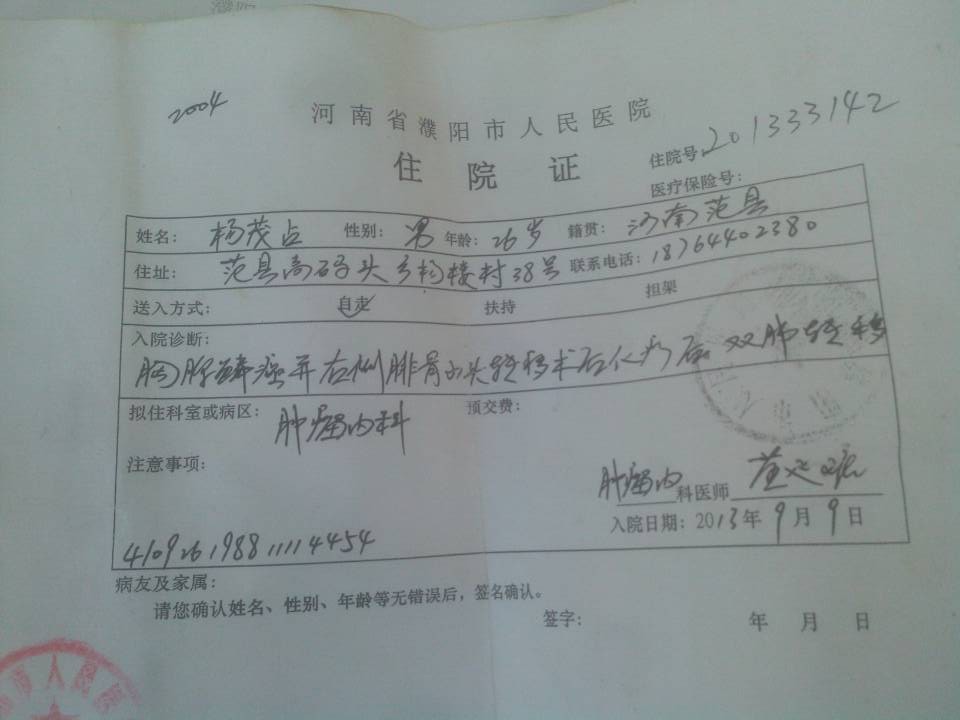 2004
河南省濮阳市人民医院
住院证
住院号 201333142
医疗保险号:
姓名: 杨茂占 性别: 男 年龄: 26岁 籍贯: 河南范县
住址: 范县高码头乡杨楼村38号 联系电话: 18764402380
送入方式: 自走 扶持 担架
入院诊断:
胸腺鳞癌并右侧腓骨小头转移术后化疗后 双肺转移
拟住科室或病区: 肿瘤内科 预交费:
注意事项:
肿瘤内科医师
入院日期: 2013年9月9日
410926198811114454
病友及家属:
请您确认姓名、性别、年龄等无错误后,签名确认。
签字: 年 月 日
市人民医